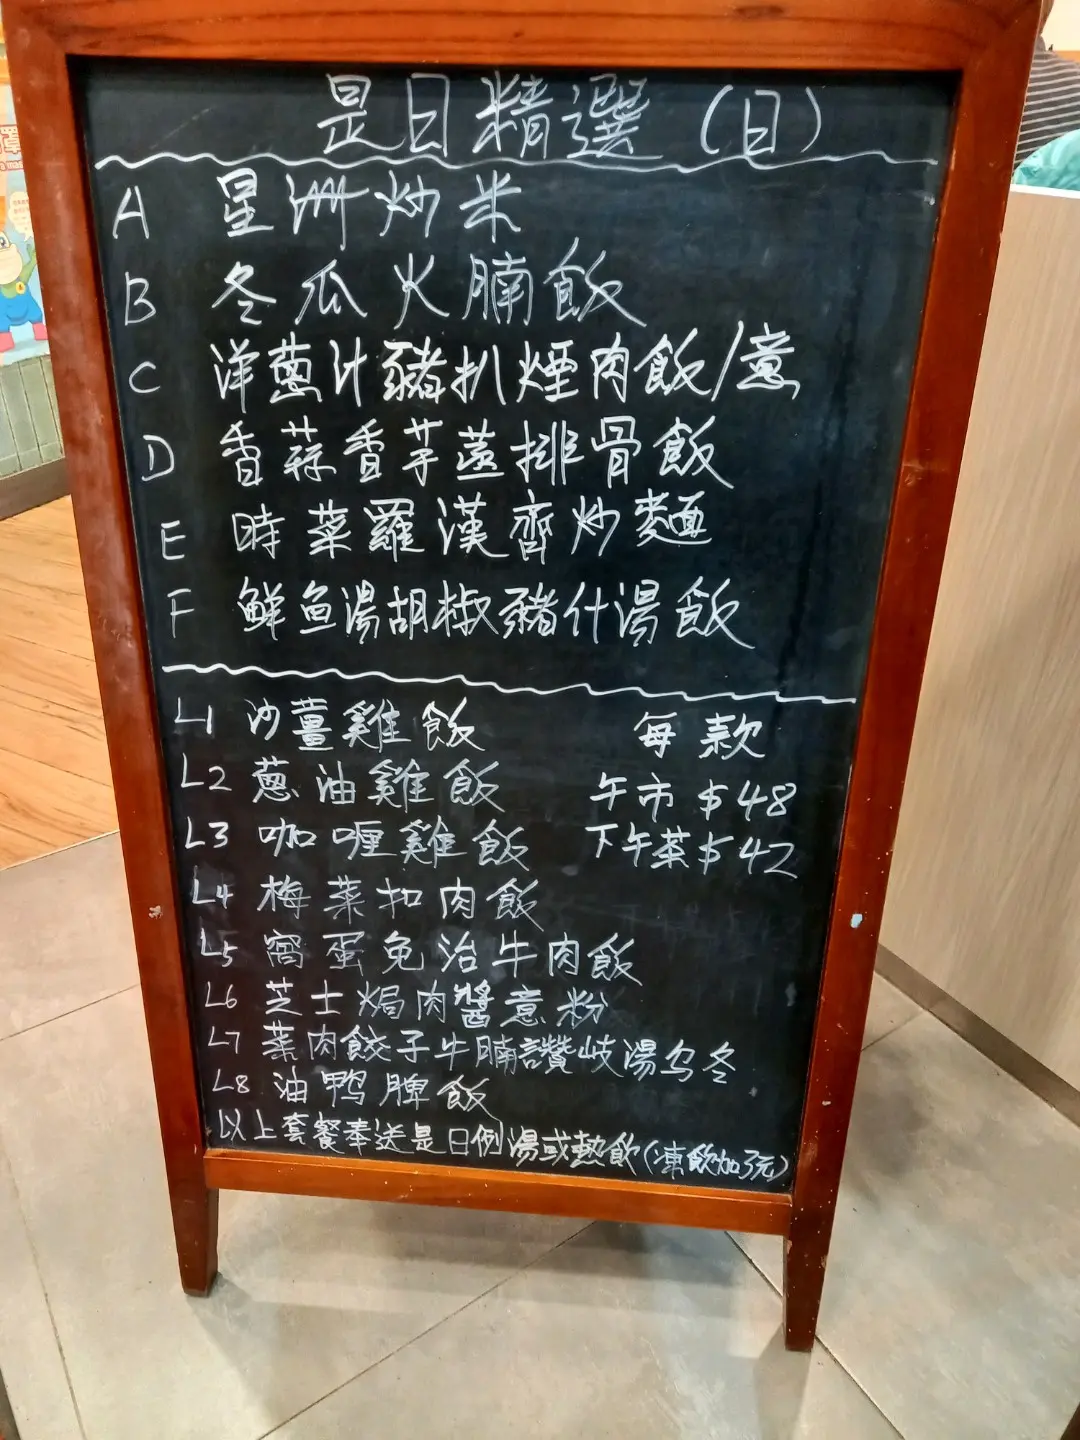 是日精選(日)
A 星洲炒米
B 冬瓜火腩飯
C 洋蔥汁豬扒煙肉飯/意
D 香蒜香芋蒸排骨飯
E 時菜羅漢齊炒麵
F 鮮魚湯胡椒豬什湯飯
L1 沙薑雞飯
L2 蔥油雞飯
L3 咖喱雞飯
L4 梅菜扣肉飯
L5 窩蛋免治牛肉飯
L6 芝士焗肉醬意粉
L7 菜肉餃子牛腩讚岐湯乌冬
L8 油鸭脾飯
每款
午市$48
下午茶$42
以上套餐奉送是日例湯或熱飲(凍飲加3元)